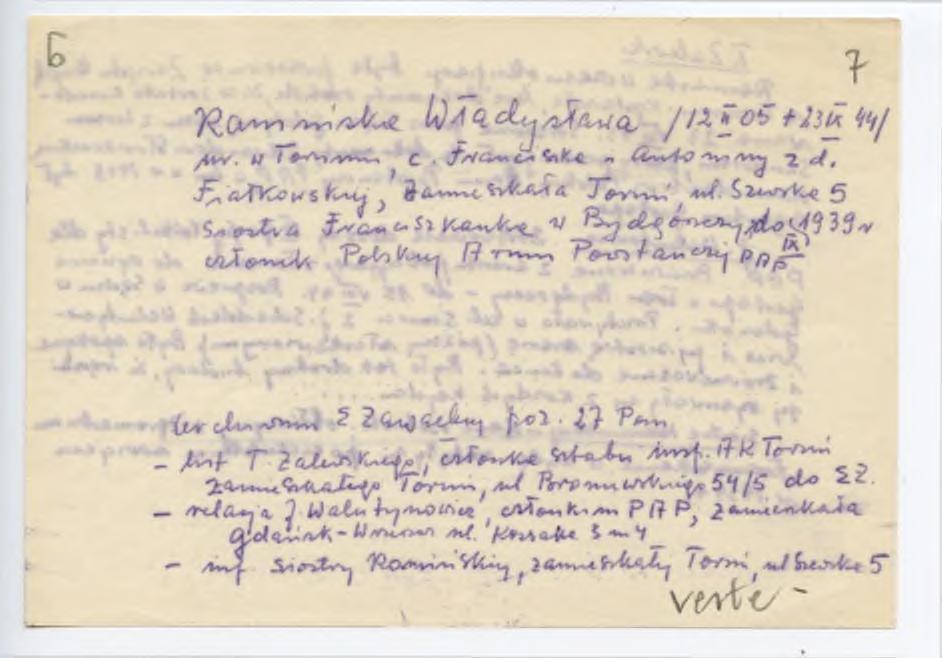 6
7
Ramińska Władysława /12 II 05 + 23 IX 44/
ur. w Toruniu, c. Franciszka i Antoniny z d.
Fiałkowskiej, Zamieszkała Toruń ul. Szewska 5
Siostra Franciszkanka w Bydgoszczy do (IX) 1939 r
członek Polskiej Armii Powstańczej PAP
W archiwum E Zawackiej poz. 27 Pom
- list T. Zalewskiego, członka sztabu insp. AK Toruń
zamieszkałego Toruń, ul Broniewskiego 54/5 do EZ.
- relacja J. Walutynowicz, członkini PAP, zamieszkała
Gdańsk-Wrzeszcz ul. Kossaka 3 m 4
- inf. siostry Ramińskiej, zamieszkały Toruń, ul Szewska 5
verte -